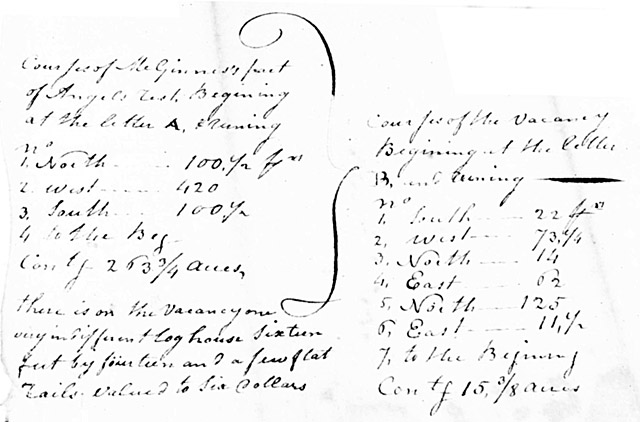 Courses of McGinnis's part
of Angels rest. Begining
at the letter A, & runing
no
1. North 100,1/2 prs
2. West 420
3. South 100,1/2
4 to the Beg
Contg 263 3/4 acres,
there is on the vacancy one
very indifferent log house Sixteen
feet by fourteen and a few flat
Rails. valued to Six Dollars
Courses of the vacancy
Begining at the letter
B, and runing
no
1, South 22 prs
2, West 73,1/4
3, North 14
4, East 62
5, North 125
6, East 11,1/2
7, to the Begining
Contg 15,3/8 acres